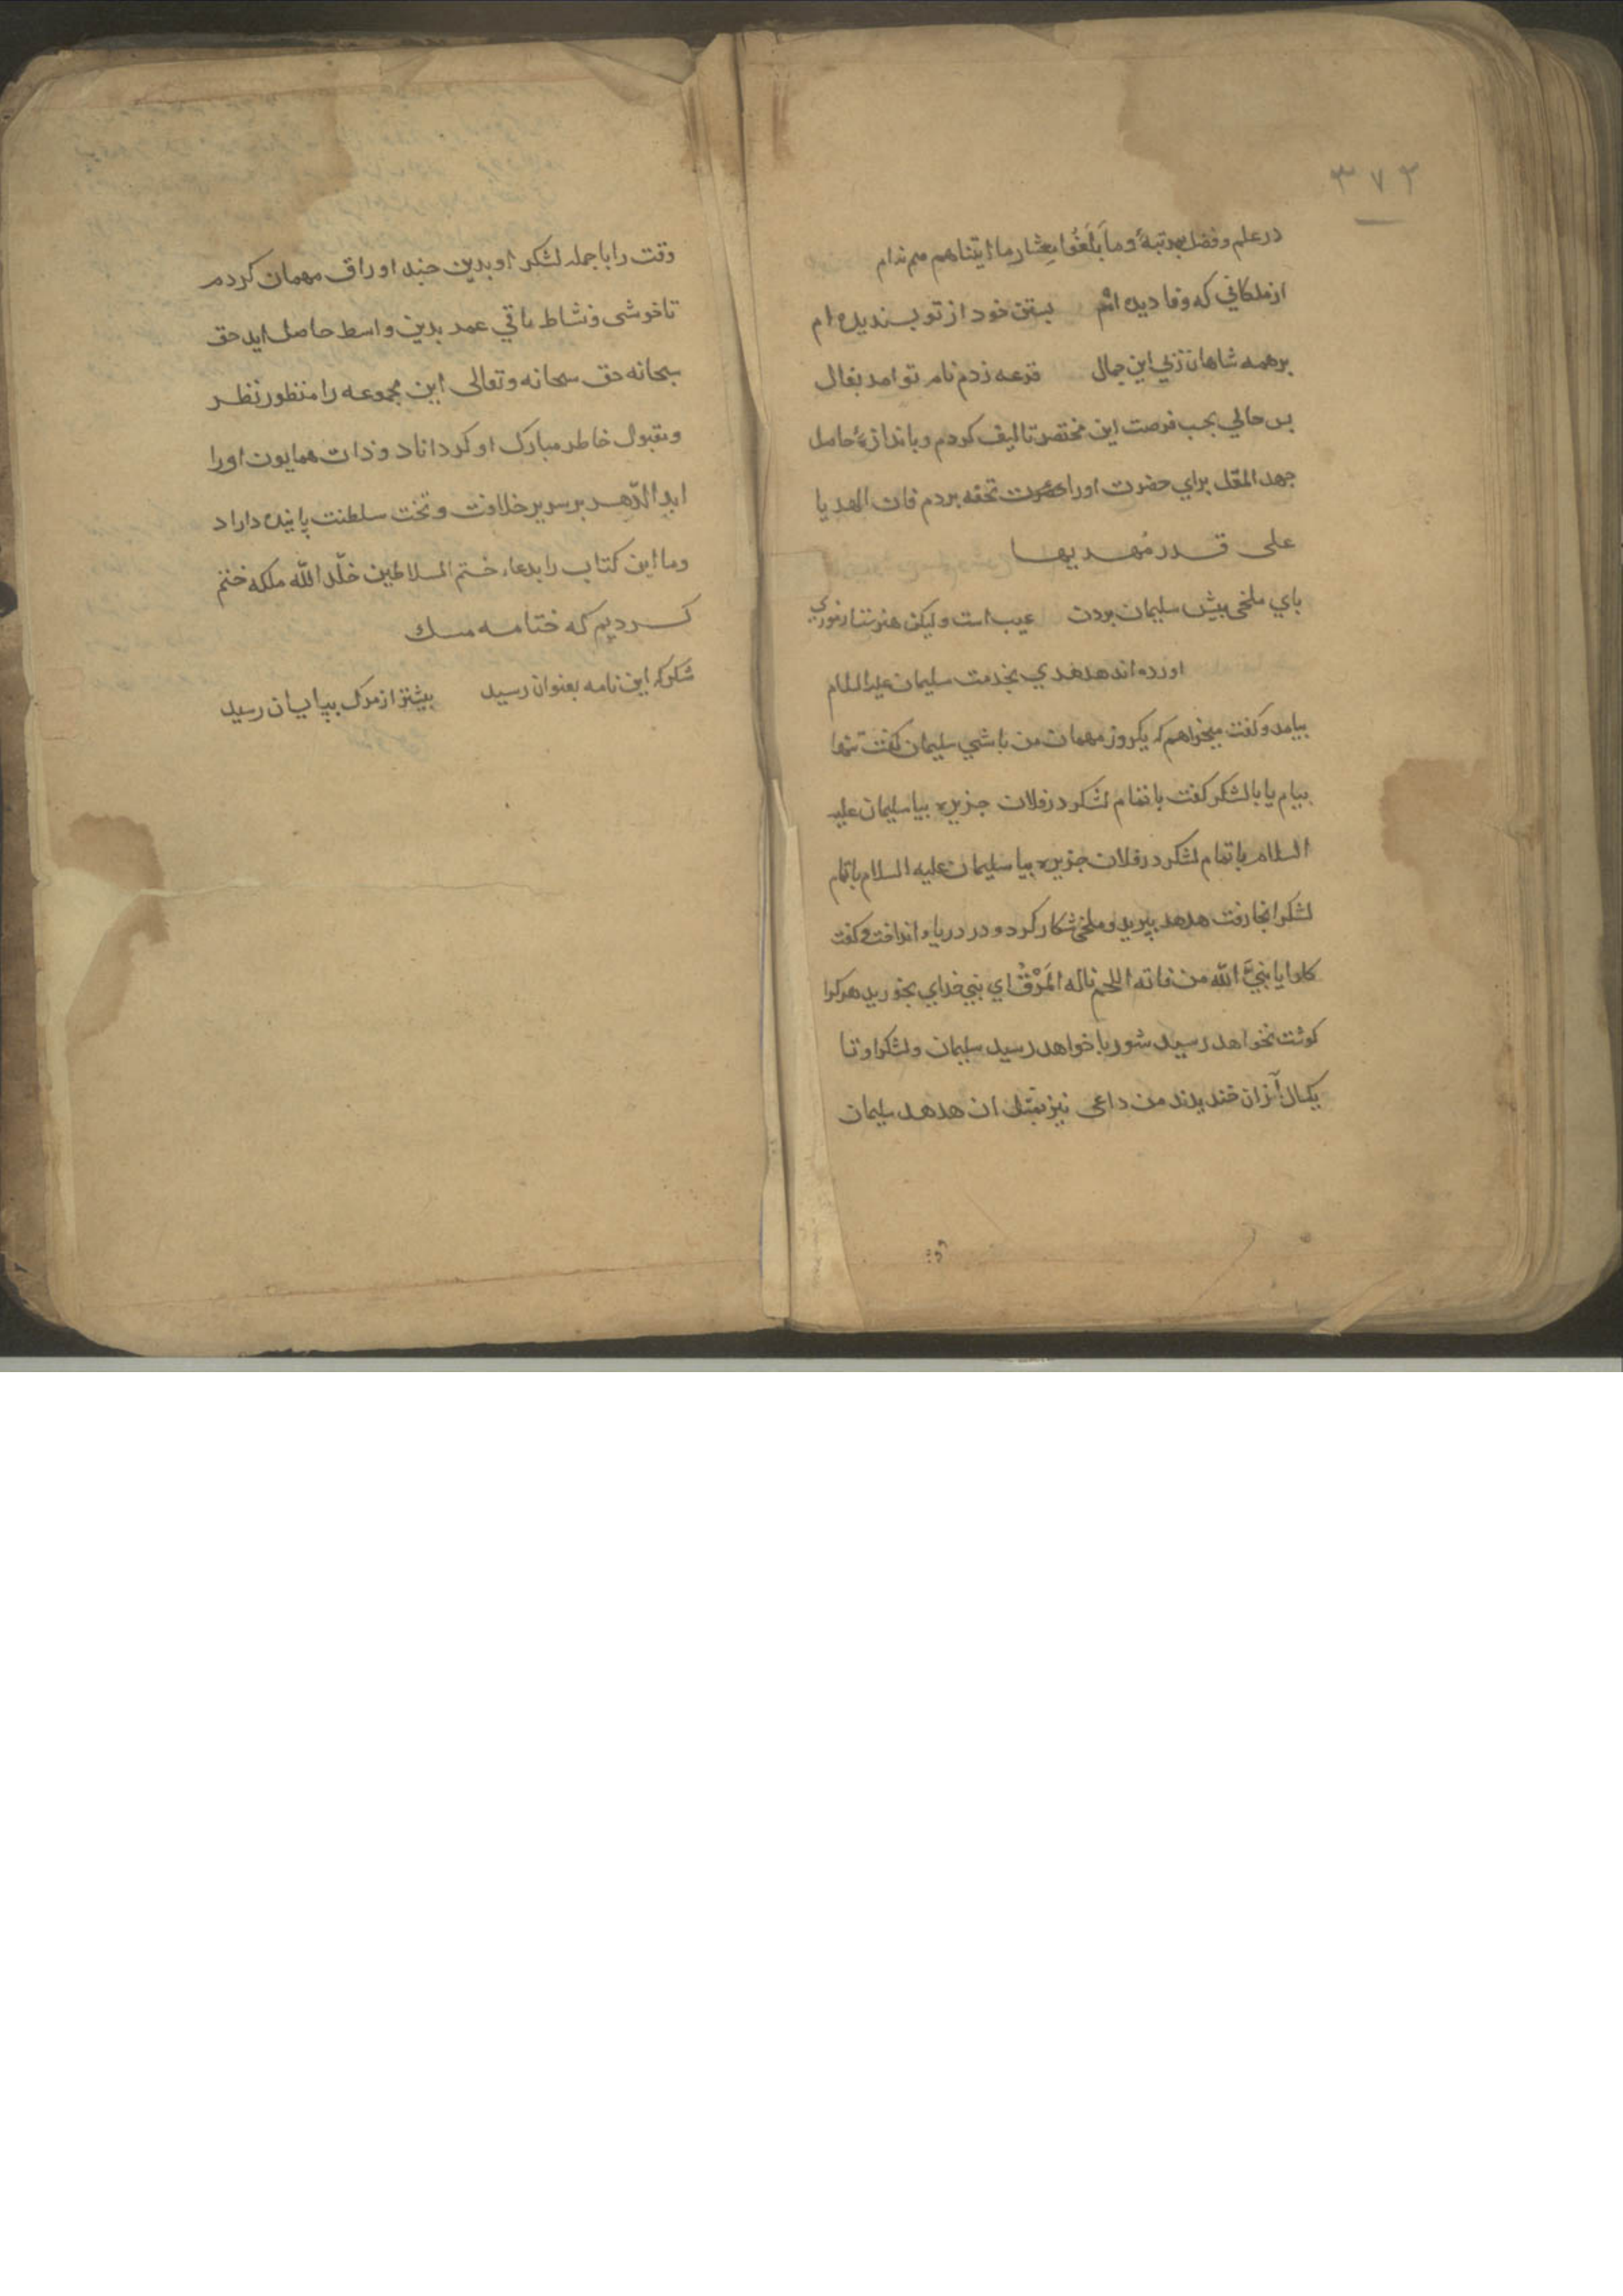 ٣٧٢
در علم و فضل بمرتبهٔ وما بَلَغُوا مِعْشار ما اتیناهم میم ندام
از ملکانی که وفا دیده ام بستن خود از تو بسندیده ام
بر همه شاهان زپی این جمال قرعه زدم نام تو امد بفال
بس حالي بحب فرصت این مختصر تالیف کردم و باندازهٔ حاصل
جهد المقل براي حضرت اورا تحفه بردم فان الهدیا
علی قدر مُهدیها
باي ملخی بیش سلیمان بردن عیب است ولیکن هنرست از موری
اورده اند هدهدي بخدمت سلیمان علیه السلام
بیامد و کفت میخواهم که یکروز مهمان من باشي سلیمان کفت تنها
بیام یا با لشکر کفت با تمام لشکر در فلان جزیره بیا سلیمان علیه
السلام با تمام لشکر در فلان جزیره بیا سلیمان علیه السلام با تمام
لشکر انجا رفت هدهد ببرید و ملخی شکار کرد و در دریا انداخت و کفت
کلوا یا نبيَّ الله من فاته اللحم ناله المَرَقُ اي نبي خداي بخورید هر کرا
کوشت نخواهد رسید شوربا خواهد رسید سلیمان و لشکر او تا
یکسال ازان خندیدند من داعی نیز بمثل ان هدهد سلیمان
وقت را با جمله لشکر او بدین جند اوراق مهمان کردم
تا خوشی و نشاط باقي عمر بدین واسط حاصل اید حق
سبحانه حق سبحانه وتعالی این مجموعه را منظور نظر
و مقبول خاطر مبارک او کرداناد و ذات همایون اورا
ابد الدّهر بر سریر خلافت و تخت سلطنت پاینده داراد
و ما این کتاب را بدعاء ختم السلاطین خلّد الله ملکه ختم
کردیم که ختامه مسك
شکر که این نامه بعنوان رسید بیشتر از مرک ببایان رسید